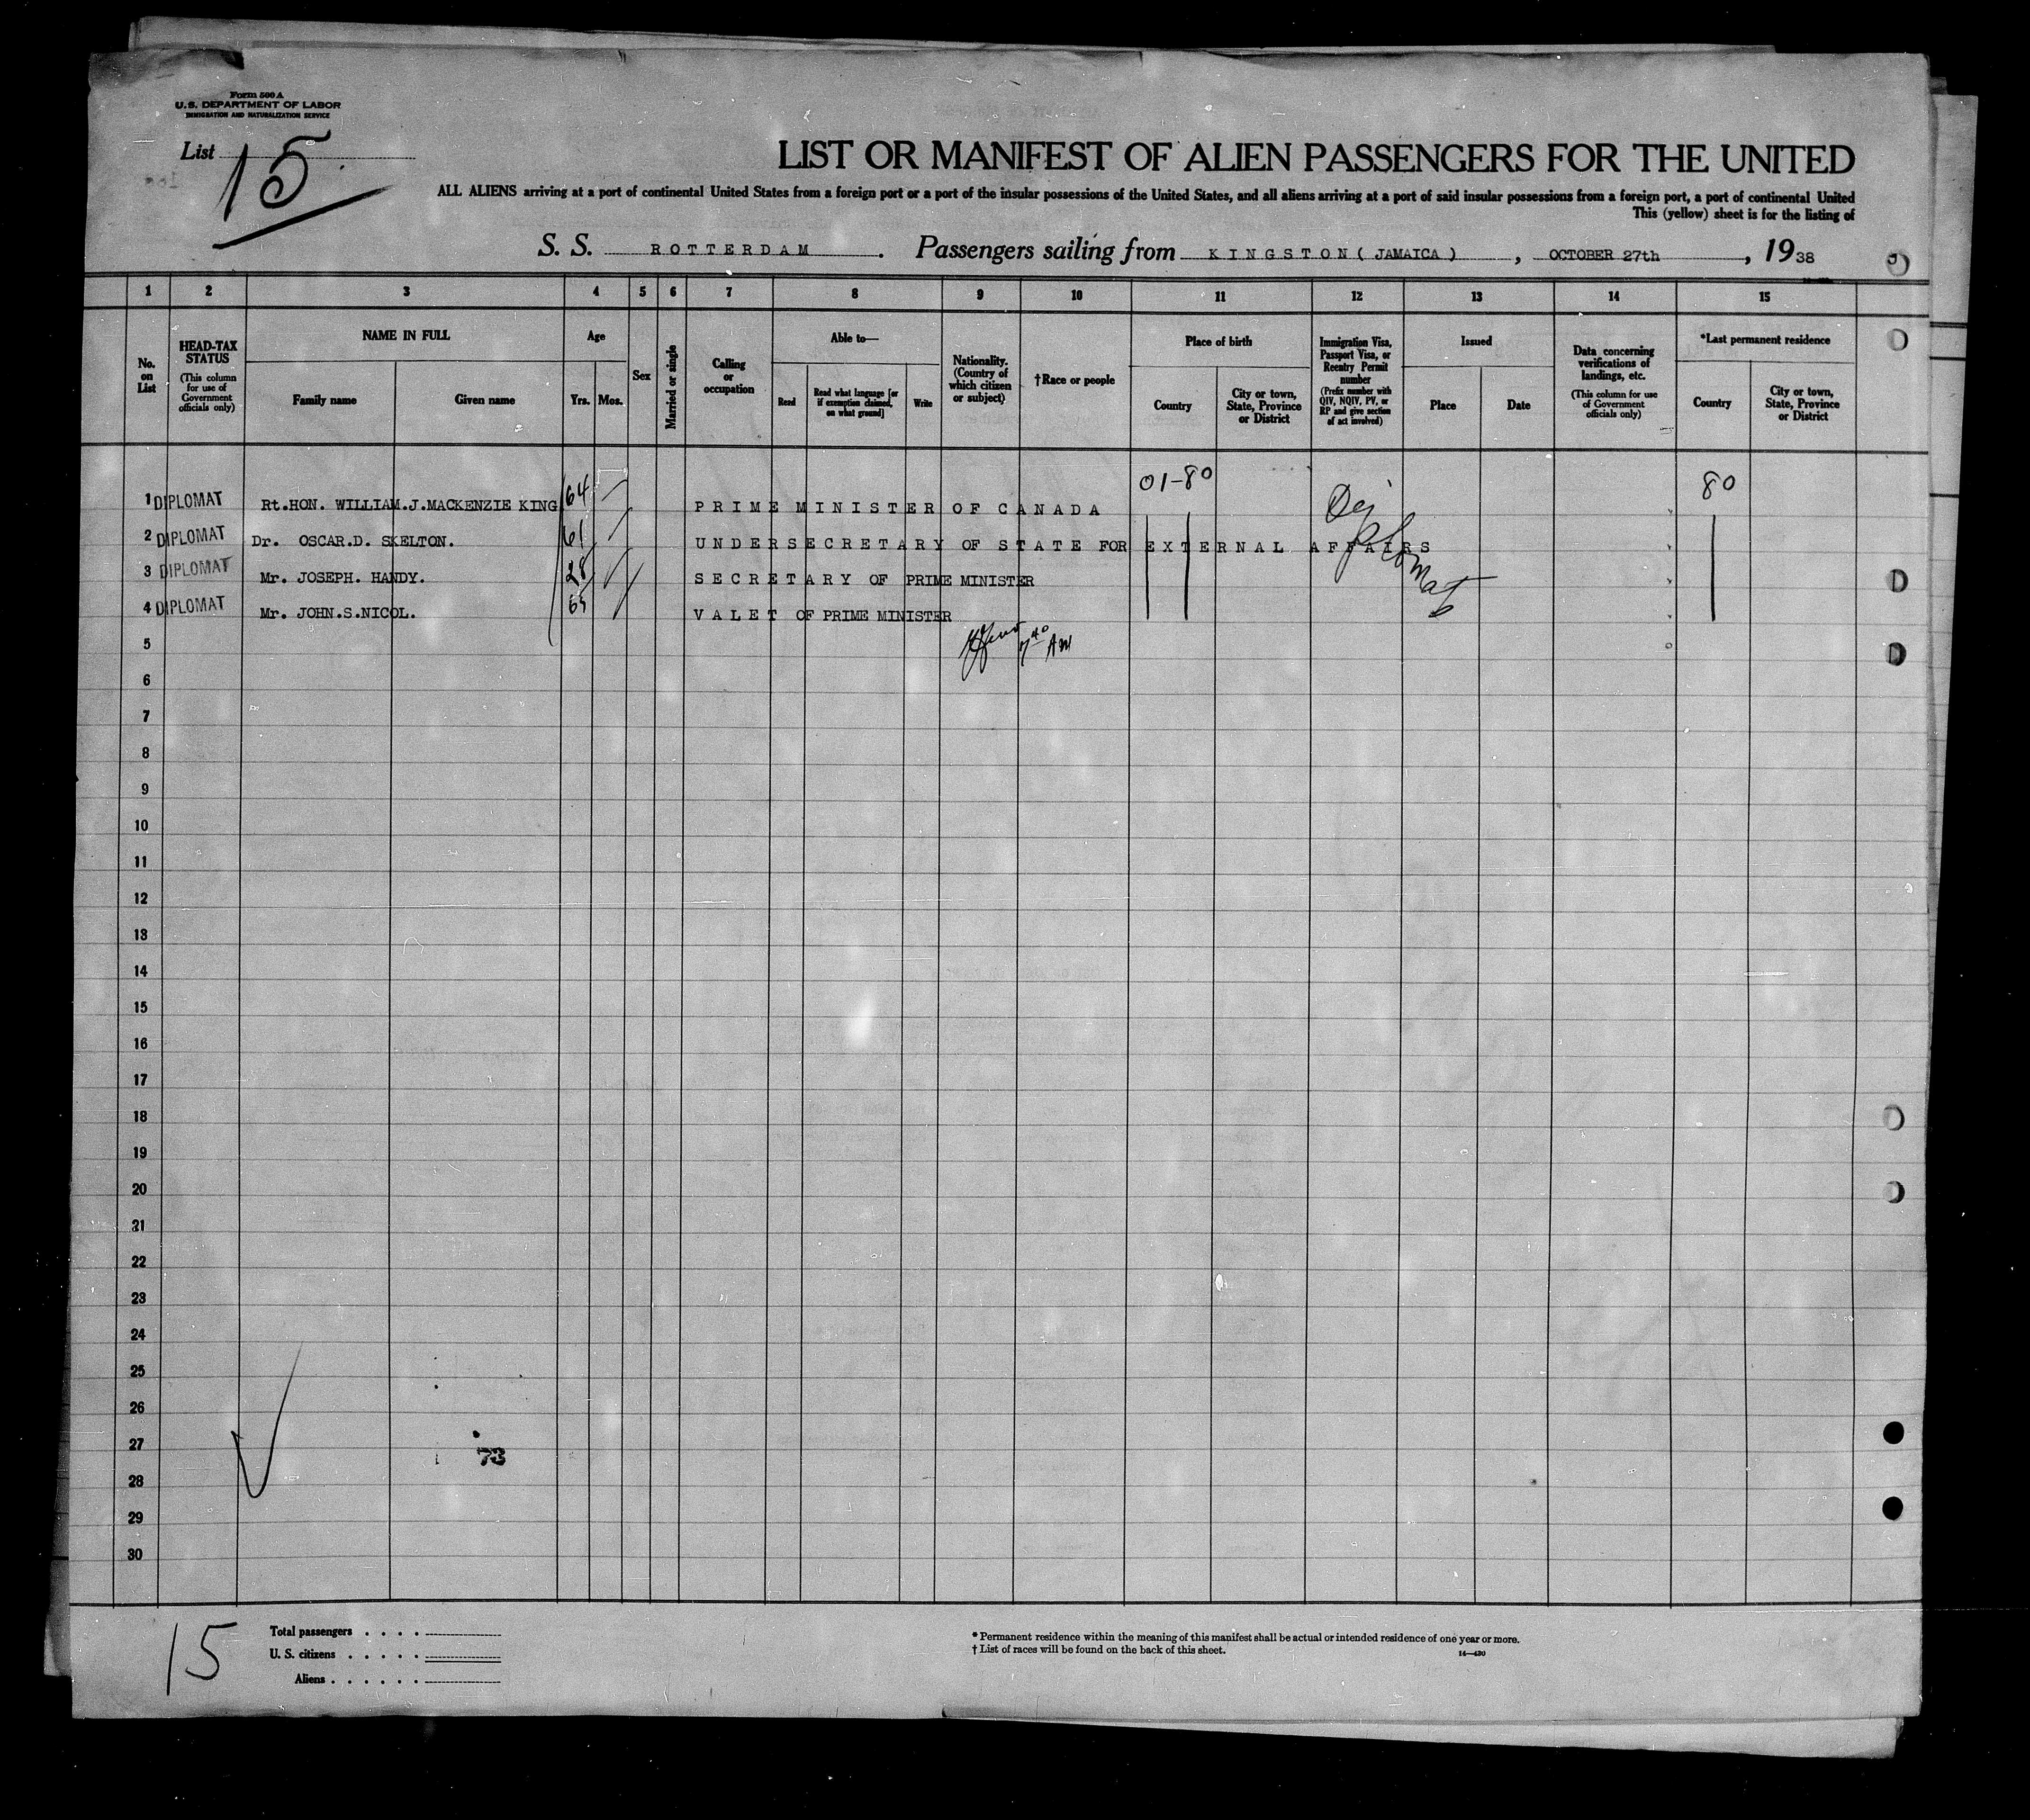 Form 500 A
U.S. DEPARTMENT OF LABOR
IMMIGRATION AND NATURALIZATION SERVICE
List 15
LIST OR MANIFEST OF ALIEN PASSENGERS FOR THE UNITED
ALL ALIENS arriving at a port of continental United States from a foreign port or a port of the insular possessions of the United States, and all aliens arriving at a port of said insular possessions from a foreign port, a port of continental United
This (yellow) sheet is for the listing of
S. S. ROTTERDAM. Passengers sailing from KINGSTON (JAMAICA), OCTOBER 27th, 19 38
1 2 3 4 5 6 7 8 9 10 11 12 13 14 15
No. on List
HEAD-TAX STATUS (This column for use of Government officials only)
NAME IN FULL
Family name Given name
Age
Yrs. Mos.
Sex
Married or single
Calling or occupation
Able to—
Read Read what language [or if exemption claimed, on what ground] Write
Nationality. (Country of which citizen or subject)
†Race or people
Place of birth
Country City or town, State, Province or District
Immigration Visa, Passport Visa, or Reentry Permit number (Prefix number with QIV, NQIV, PV, or RP and give section of act involved)
Issued
Place Date
Data concerning verifications of landings, etc. (This column for use of Government officials only)
*Last permanent residence
Country City or town, State, Province or District
01-80 80
1 DIPLOMAT Rt.HON. WILLIAM.J.MACKENZIE KING 64 PRIME MINISTER OF CANADA Diplomats
2 DIPLOMAT Dr. OSCAR.D. SKELTON. 61 UNDERSECRETARY OF STATE FOR EXTERNAL AFFAIRS
3 DIPLOMAT Mr. JOSEPH. HANDY. 28 SECRETARY OF PRIME MINISTER
4 DIPLOMAT Mr. JOHN.S.NICOL. VALET OF PRIME MINISTER
5 7 40 AM
6
7
8
9
10
11
12
13
14
15
16
17
18
19
20
21
22
23
24
25
26
27 73
28
29
30
15
Total passengers . . . .
U. S. citizens . . . . .
Aliens . . . . . .
* Permanent residence within the meaning of this manifest shall be actual or intended residence of one year or more.
† List of races will be found on the back of this sheet.
14—430